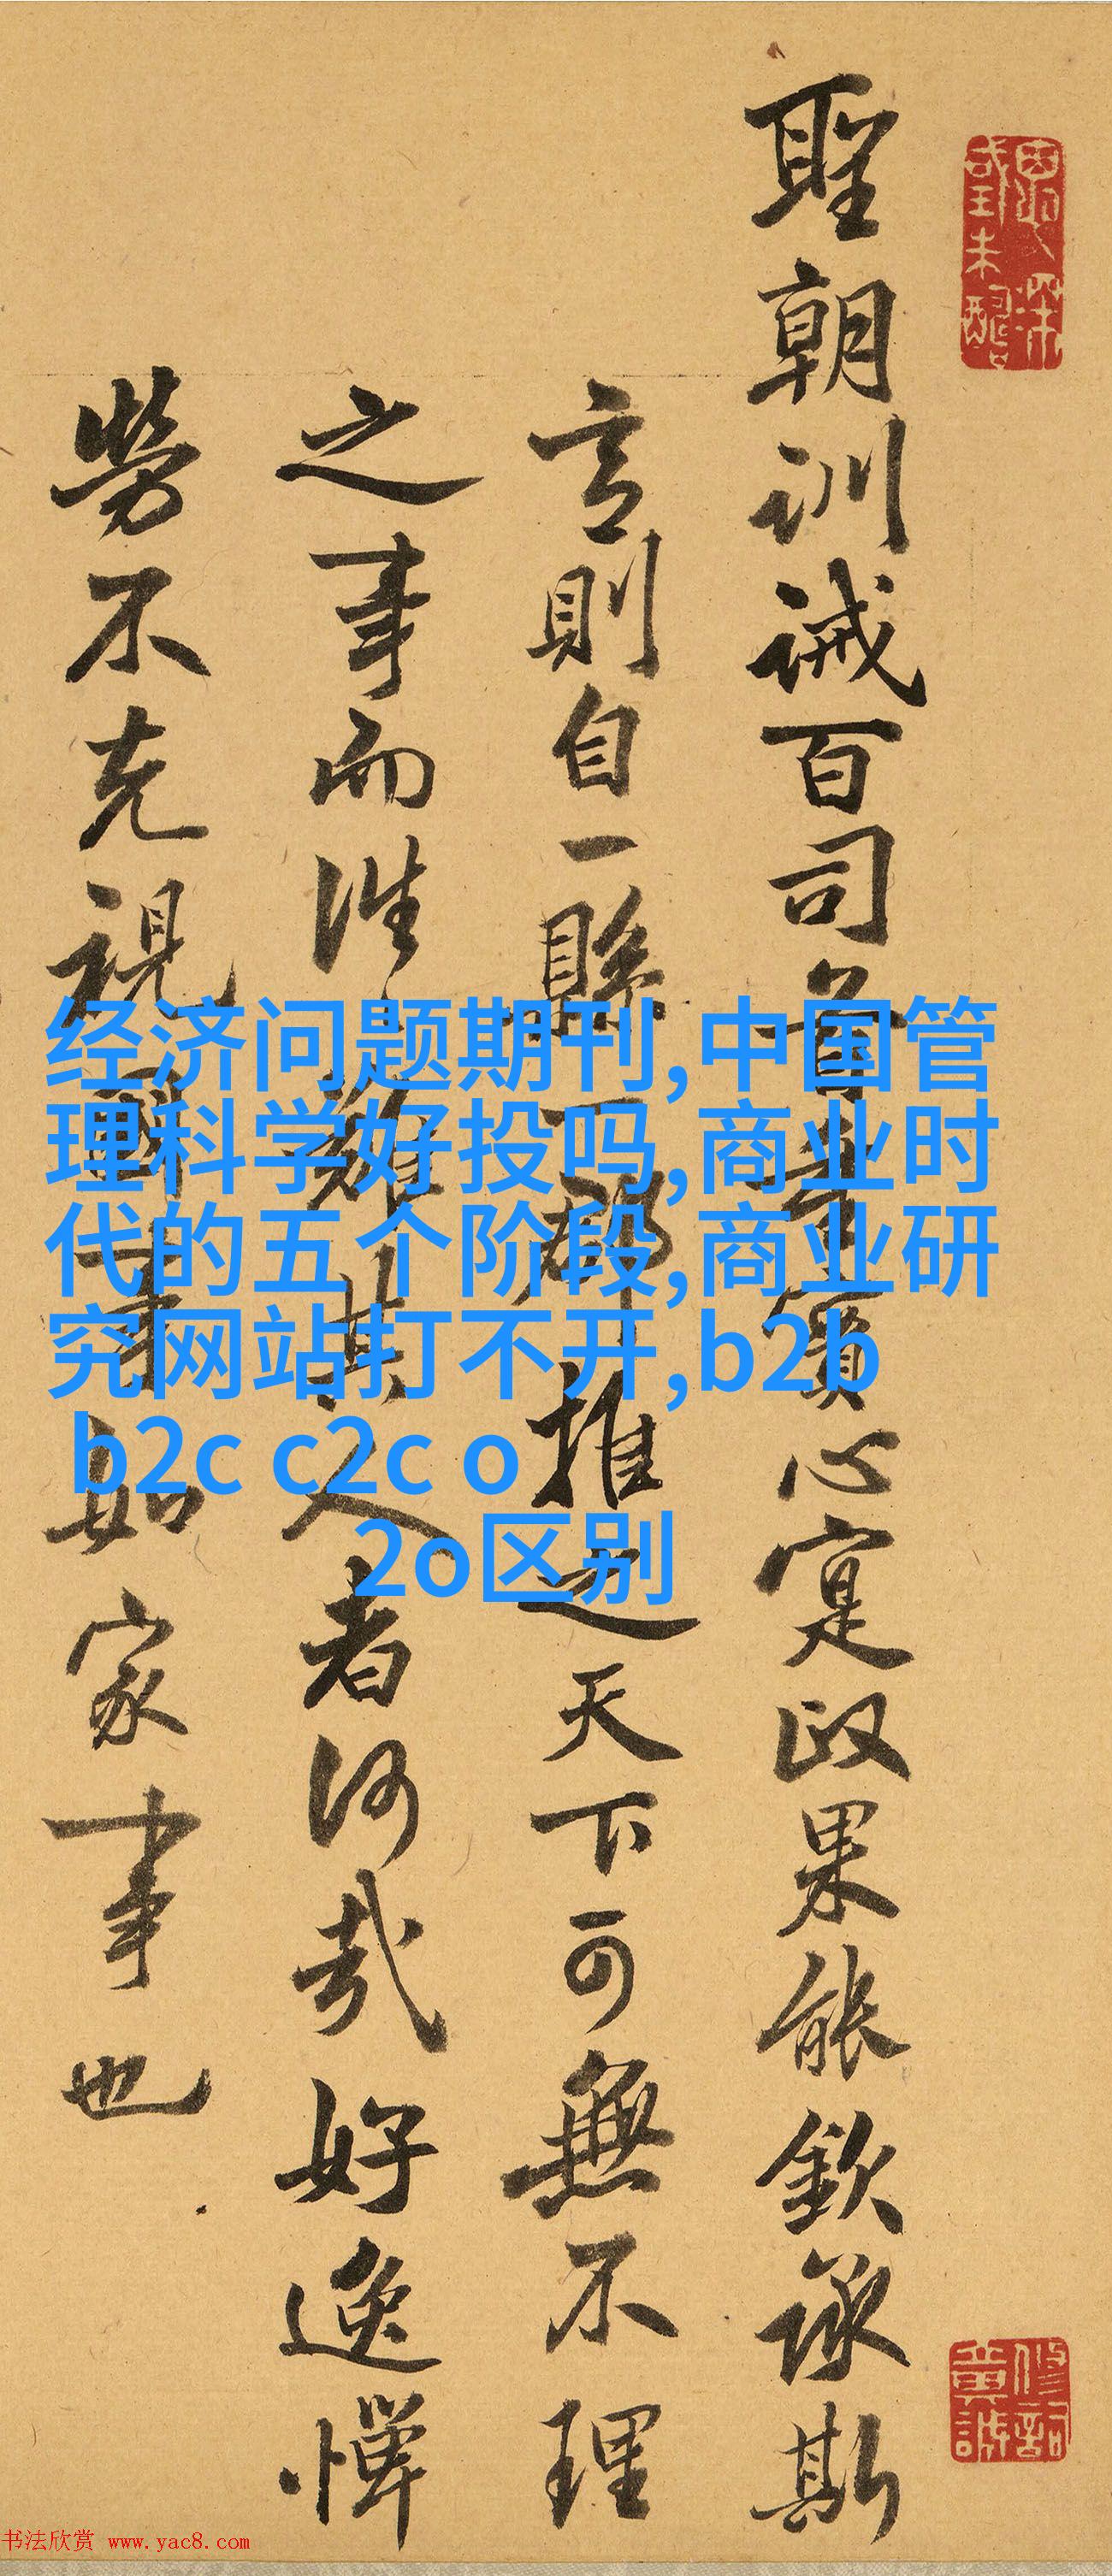 聖朝訓誡百司首言實心寔政果能欽承斯
言則自一縣一郡推之天下可無不理
之事而誰難其人者何哉好逸憚
勞不克視國事如家事也
经济问题期刊,中国管
理科学好投吗,商业时
代的五个阶段,商业研
究网站打不开,b2b
b2c c2c o
2o区别
书法欣赏 www.yac8.com